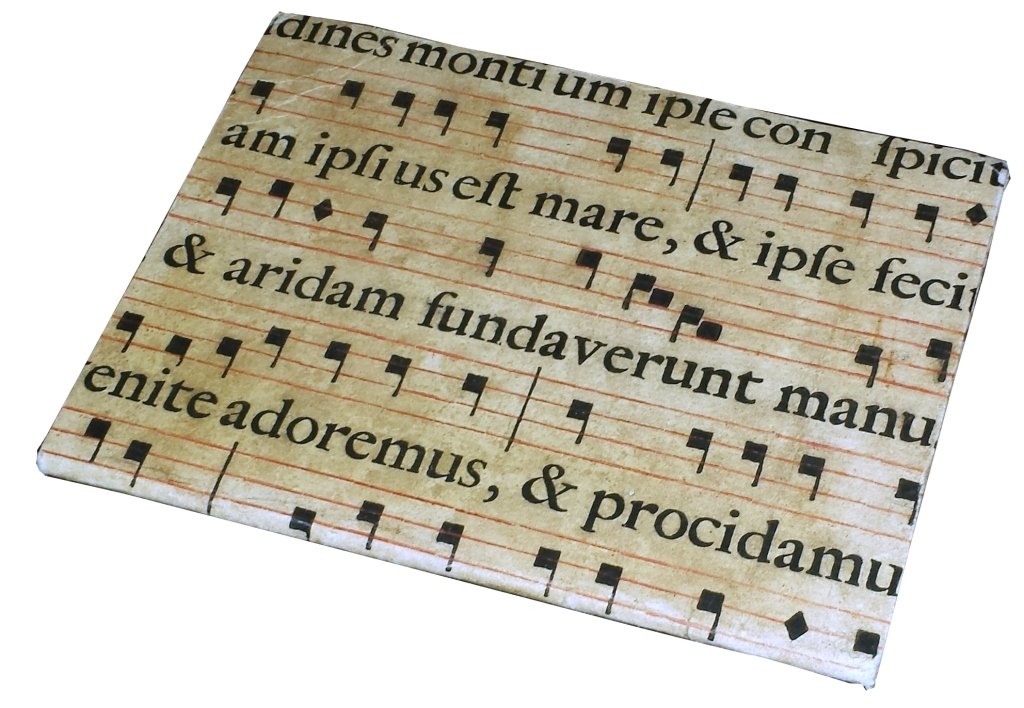 dines monti um ipſe con ſpicit
am ipſi us eſt mare, & ipſe feci
& aridam fundaverunt manu
enite adoremus, & procidamu